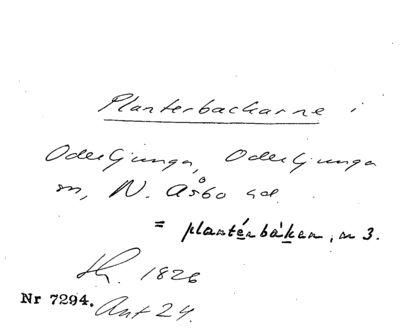 Planterbackarne i
Oderljunga, Oderljunga
sn, N. Åsbo hd.
= plantérbákan, n 3.
Sk. 1826
Nr 7294. Ant 24.